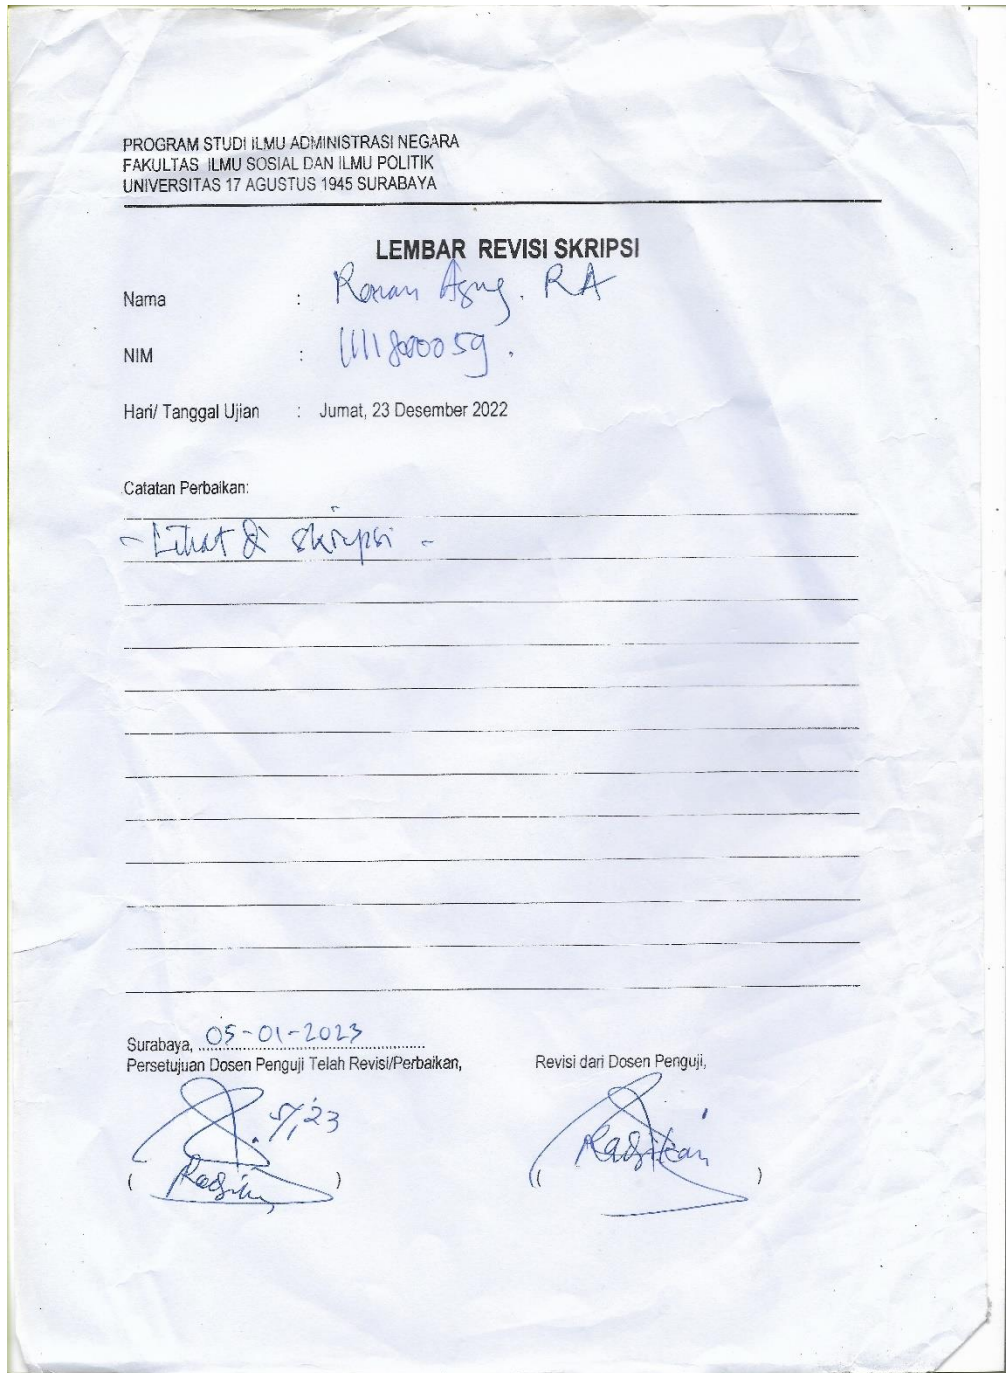 PROGRAM STUDI ILMU ADMINISTRASI NEGARA
FAKULTAS ILMU SOSIAL DAN ILMU POLITIK
UNIVERSITAS 17 AGUSTUS 1945 SURABAYA
LEMBAR REVISI SKRIPSI
Nama : Agung. RA
NIM : 1111800059.
Hari/ Tanggal Ujian : Jumat, 23 Desember 2022
Catatan Perbaikan:
- Lihat di skripsi -
Surabaya, 05-01-2023
Persetujuan Dosen Penguji Telah Revisi/Perbaikan, Revisi dari Dosen Penguji,
( ) ( Radjikan )